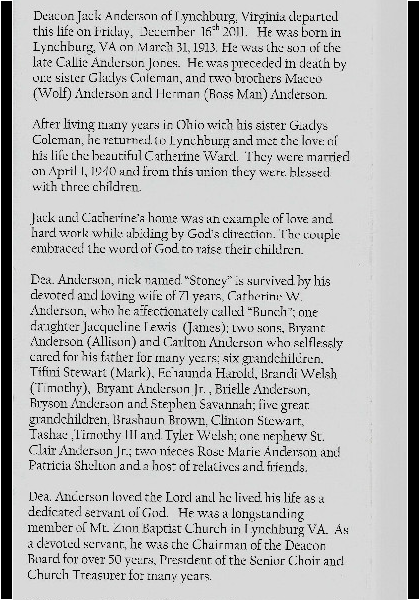 Deacon Jack Anderson of Lynchburg, Virginia departed
this life on Friday, December 16th 2011. He was born in
Lynchburg, VA on March 31, 1913. He was the son of the
late Callie Anderson Jones. He was preceded in death by
one sister Gladys Coleman, and two brothers Maceo
(Wolf) Anderson and Herman (Boss Man) Anderson.

After living many years in Ohio with his sister Gladys
Coleman, he returned to Lynchburg and met the love of
his life the beautiful Catherine Ward. They were married
on April 1, 1940 and from this union they were blessed
with three children.

Jack and Catherine's home was an example of love and
hard work while abiding by God's direction. The couple
embraced the word of God to raise their children.

Dea. Anderson, nick named "Stoney" is survived by his
devoted and loving wife of 71 years, Catherine W.
Anderson, who he affectionately called "Bunch"; one
daughter Jacqueline Lewis (James); two sons, Bryant
Anderson (Allison) and Carlton Anderson who selflessly
cared for his father for many years; six grandchildren,
Tifini Stewart (Mark), Echaunda Harold, Brandi Welsh
(Timothy), Bryant Anderson Jr., Brielle Anderson,
Bryson Anderson and Stephen Savannah; five great
grandchildren, Brashaun Brown, Clinton Stewart,
Tashae ,Timothy III and Tyler Welsh; one nephew St.
Clair Anderson Jr.; two nieces Rose Marie Anderson and
Patricia Shelton and a host of relatives and friends.

Dea. Anderson loved the Lord and he lived his life as a
dedicated servant of God. He was a longstanding
member of Mt. Zion Baptist Church in Lynchburg VA. As
a devoted servant, he was the Chairman of the Deacon
Board for over 50 years, President of the Senior Choir and
Church Treasurer for many years.